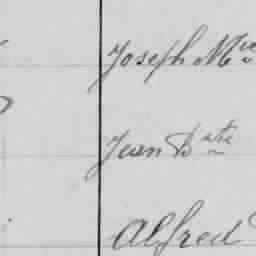 Joseph Mie
Jean Bte
Alfred